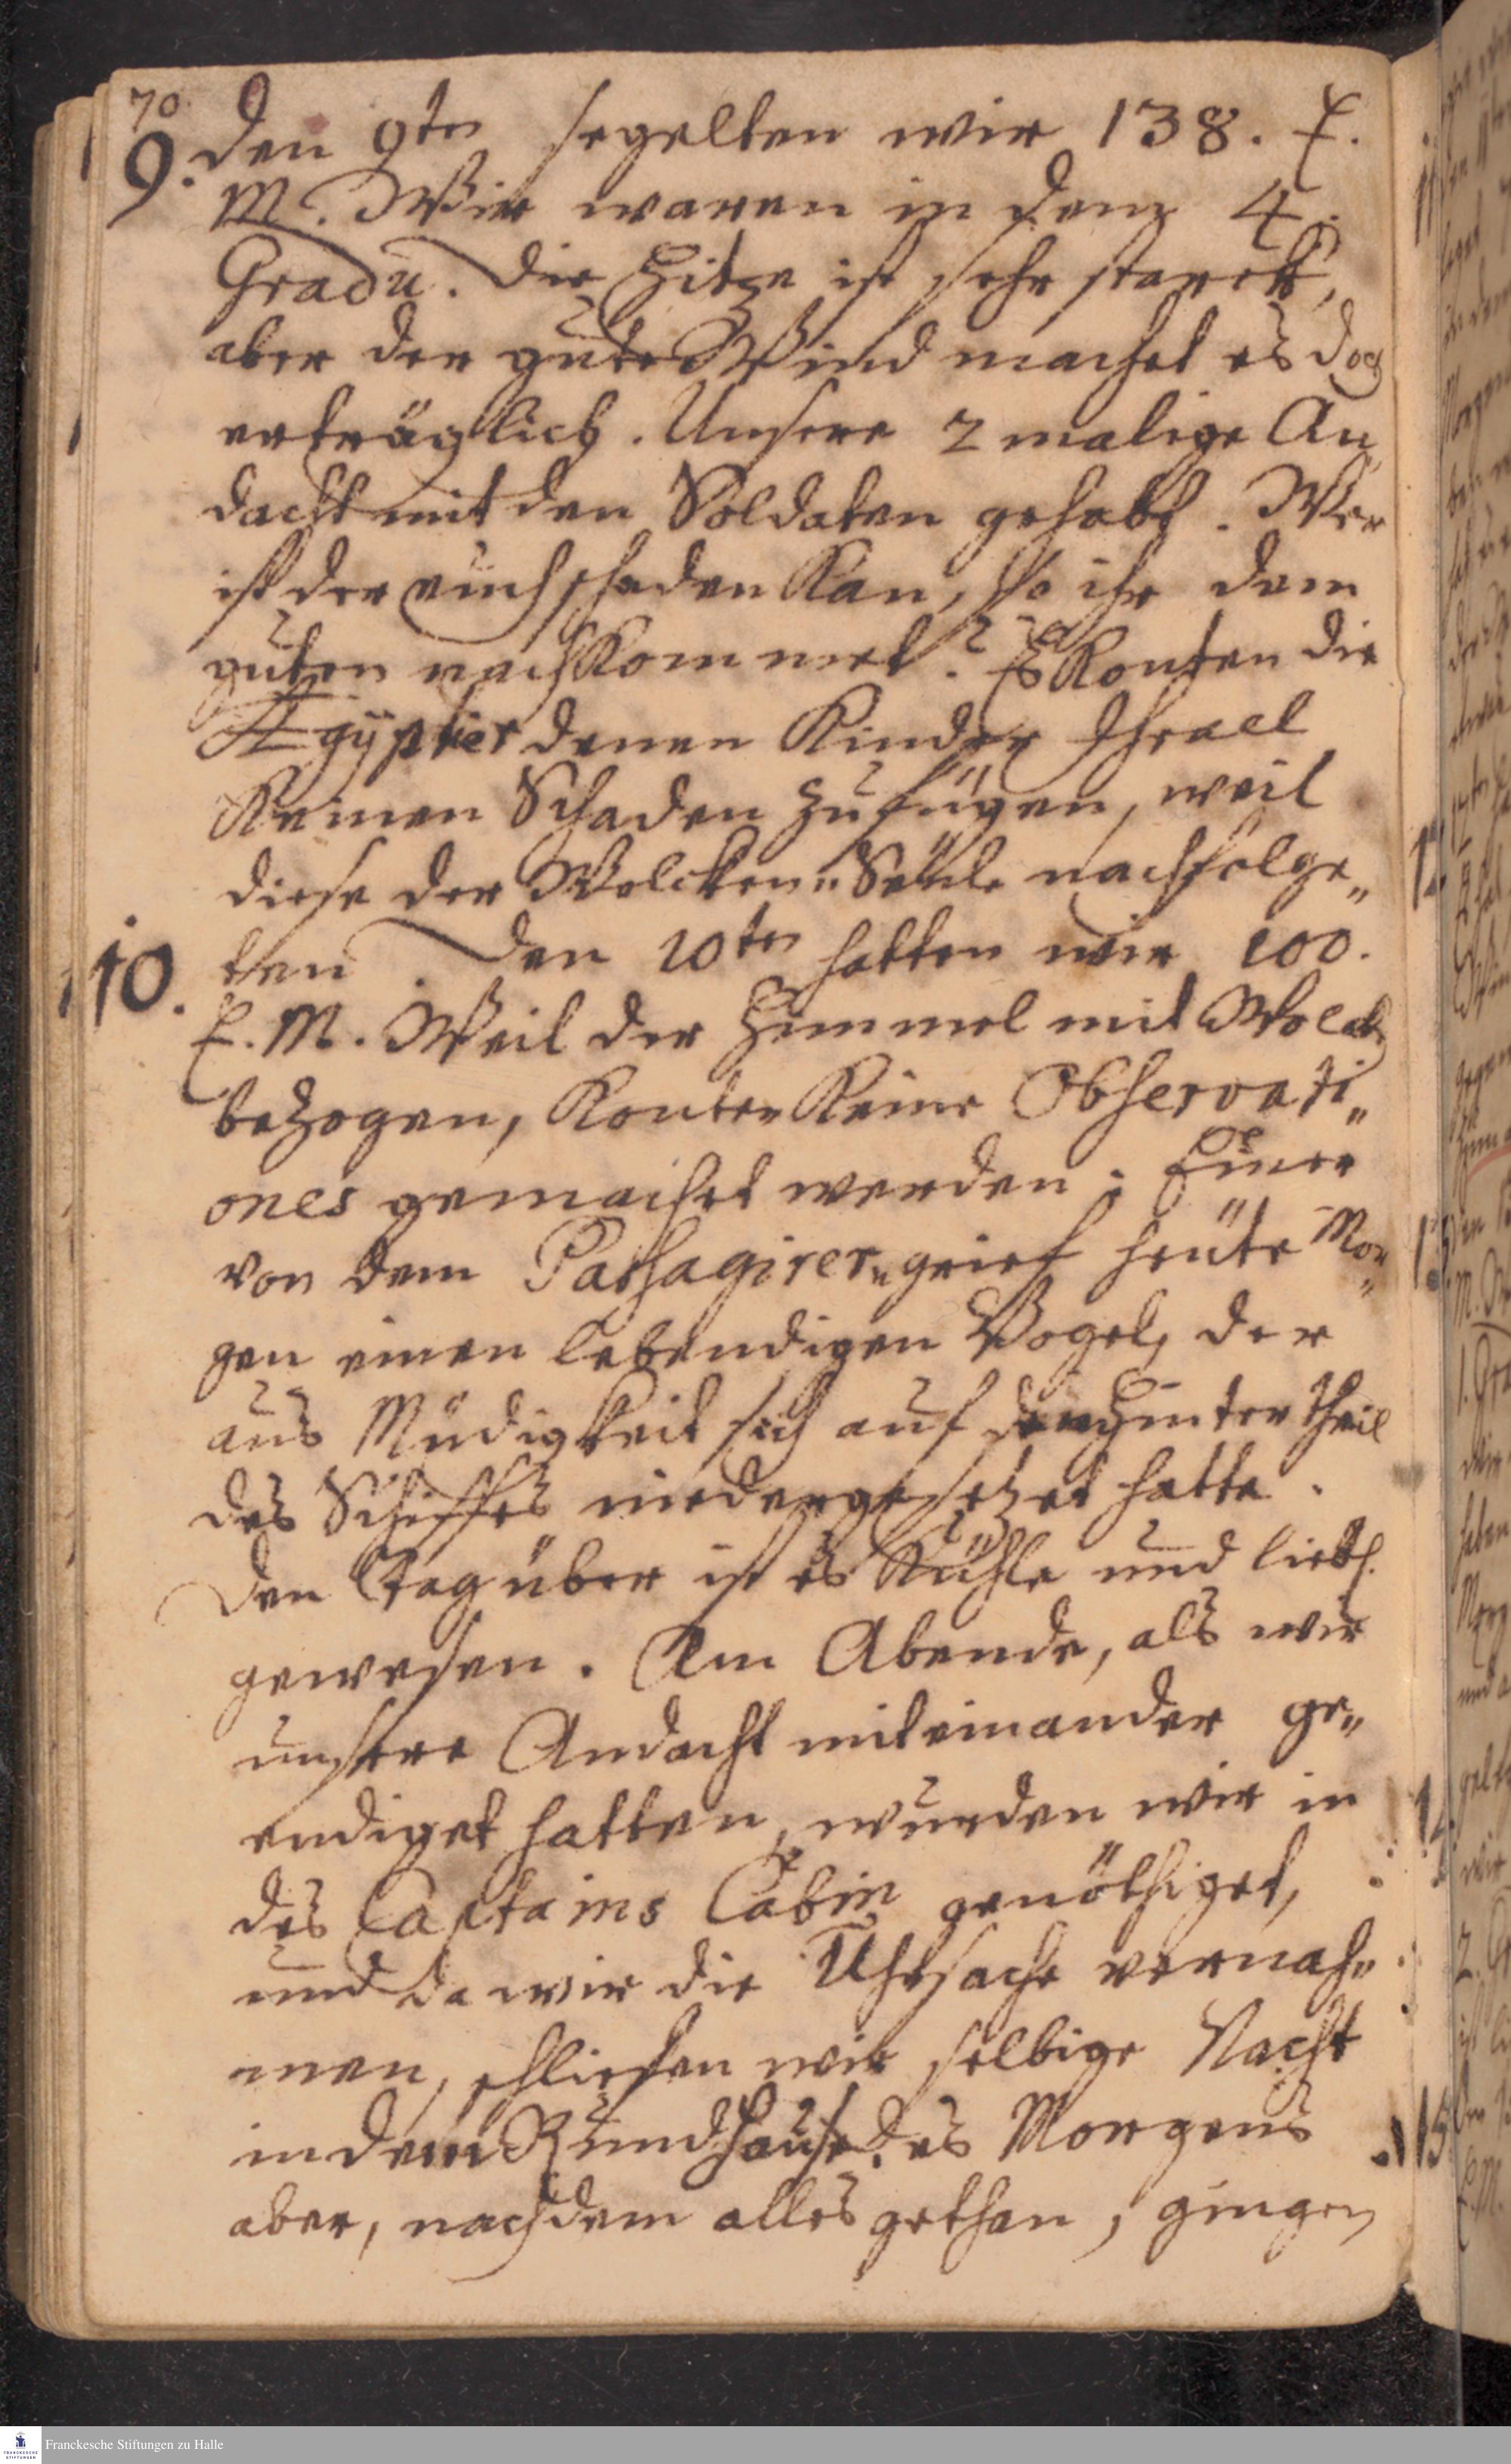 70.
9. Den 9ten segelten wir 138. E.
M. Wir waren in dem 4.
Gradu. Die Hitze ist sehr starck,
aber der gute Wind machet es doch
erträglich. Unsere 2 malige An
dacht mit den Soldaten gehabt. Wer
ist der euch schaden kan, so ihr dem
guten nachkommet? Es konten die
Ægÿptier denen Kinder Jsrael
keinen Schaden zufügen, weil
diese der Wolcken„Säule nachfolge„
10. ten. Den 10ten hatten wir 100.
E. M. Weil der Himmel mit Wolck
bezogen, konten keine Observati„
ones gemachet werden. Einer
von dem Passagirer„ grief heüte Mor„
gen einen lebendigen Vogel, der
aus Müdigkeit sich auf den Hintertheil
des Schiffes niedergesetzet hatte.
Den Tag über ist es kühle und liebl.
gewesen. Am Abende, als wir
unsere Andacht miteinander ge„
endiget hatten, wurden wir in
des Captains Cabin genöthiget,
und da wir die Uhrsache vernah„
men, schliefen wir selbige Nacht
in dem Rundhause. des Morgens
aber, nachdem alles gethan, gingen
Franckesche Stiftungen zu Halle